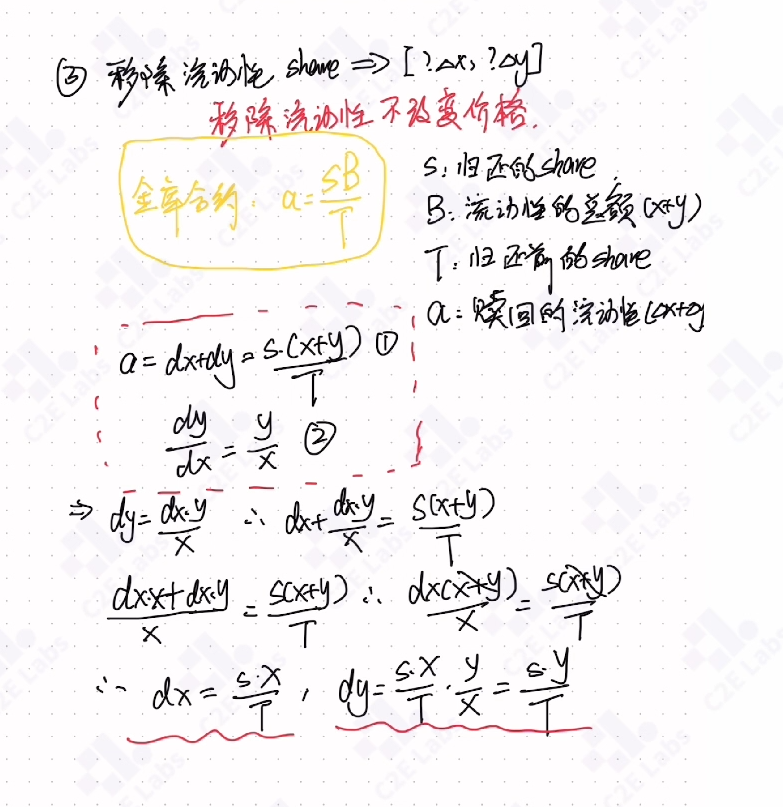 ③ 移除流动性 share ⇒ [?△x, ?△y]
移除流动性不改变价格.
金库合约: a = sB/T
S: 归还的share
B: 流动性的总额(x+y)
T: 归还前的share
a: 赎回的流动性(△x+△y
a = dx+dy = s.(x+y)/T ①
dy/dx = y/x ②
⇒ dy = dx·y/x ∴ dx + dx·y/x = S(x+y)/T
dx·x+dx·y/x = S(x+y)/T ∴ dx(x+y)/x = S(x+y)/T
∴ dx = s·x/T , dy = s·x/T · y/x = s·y/T
C2E Labs